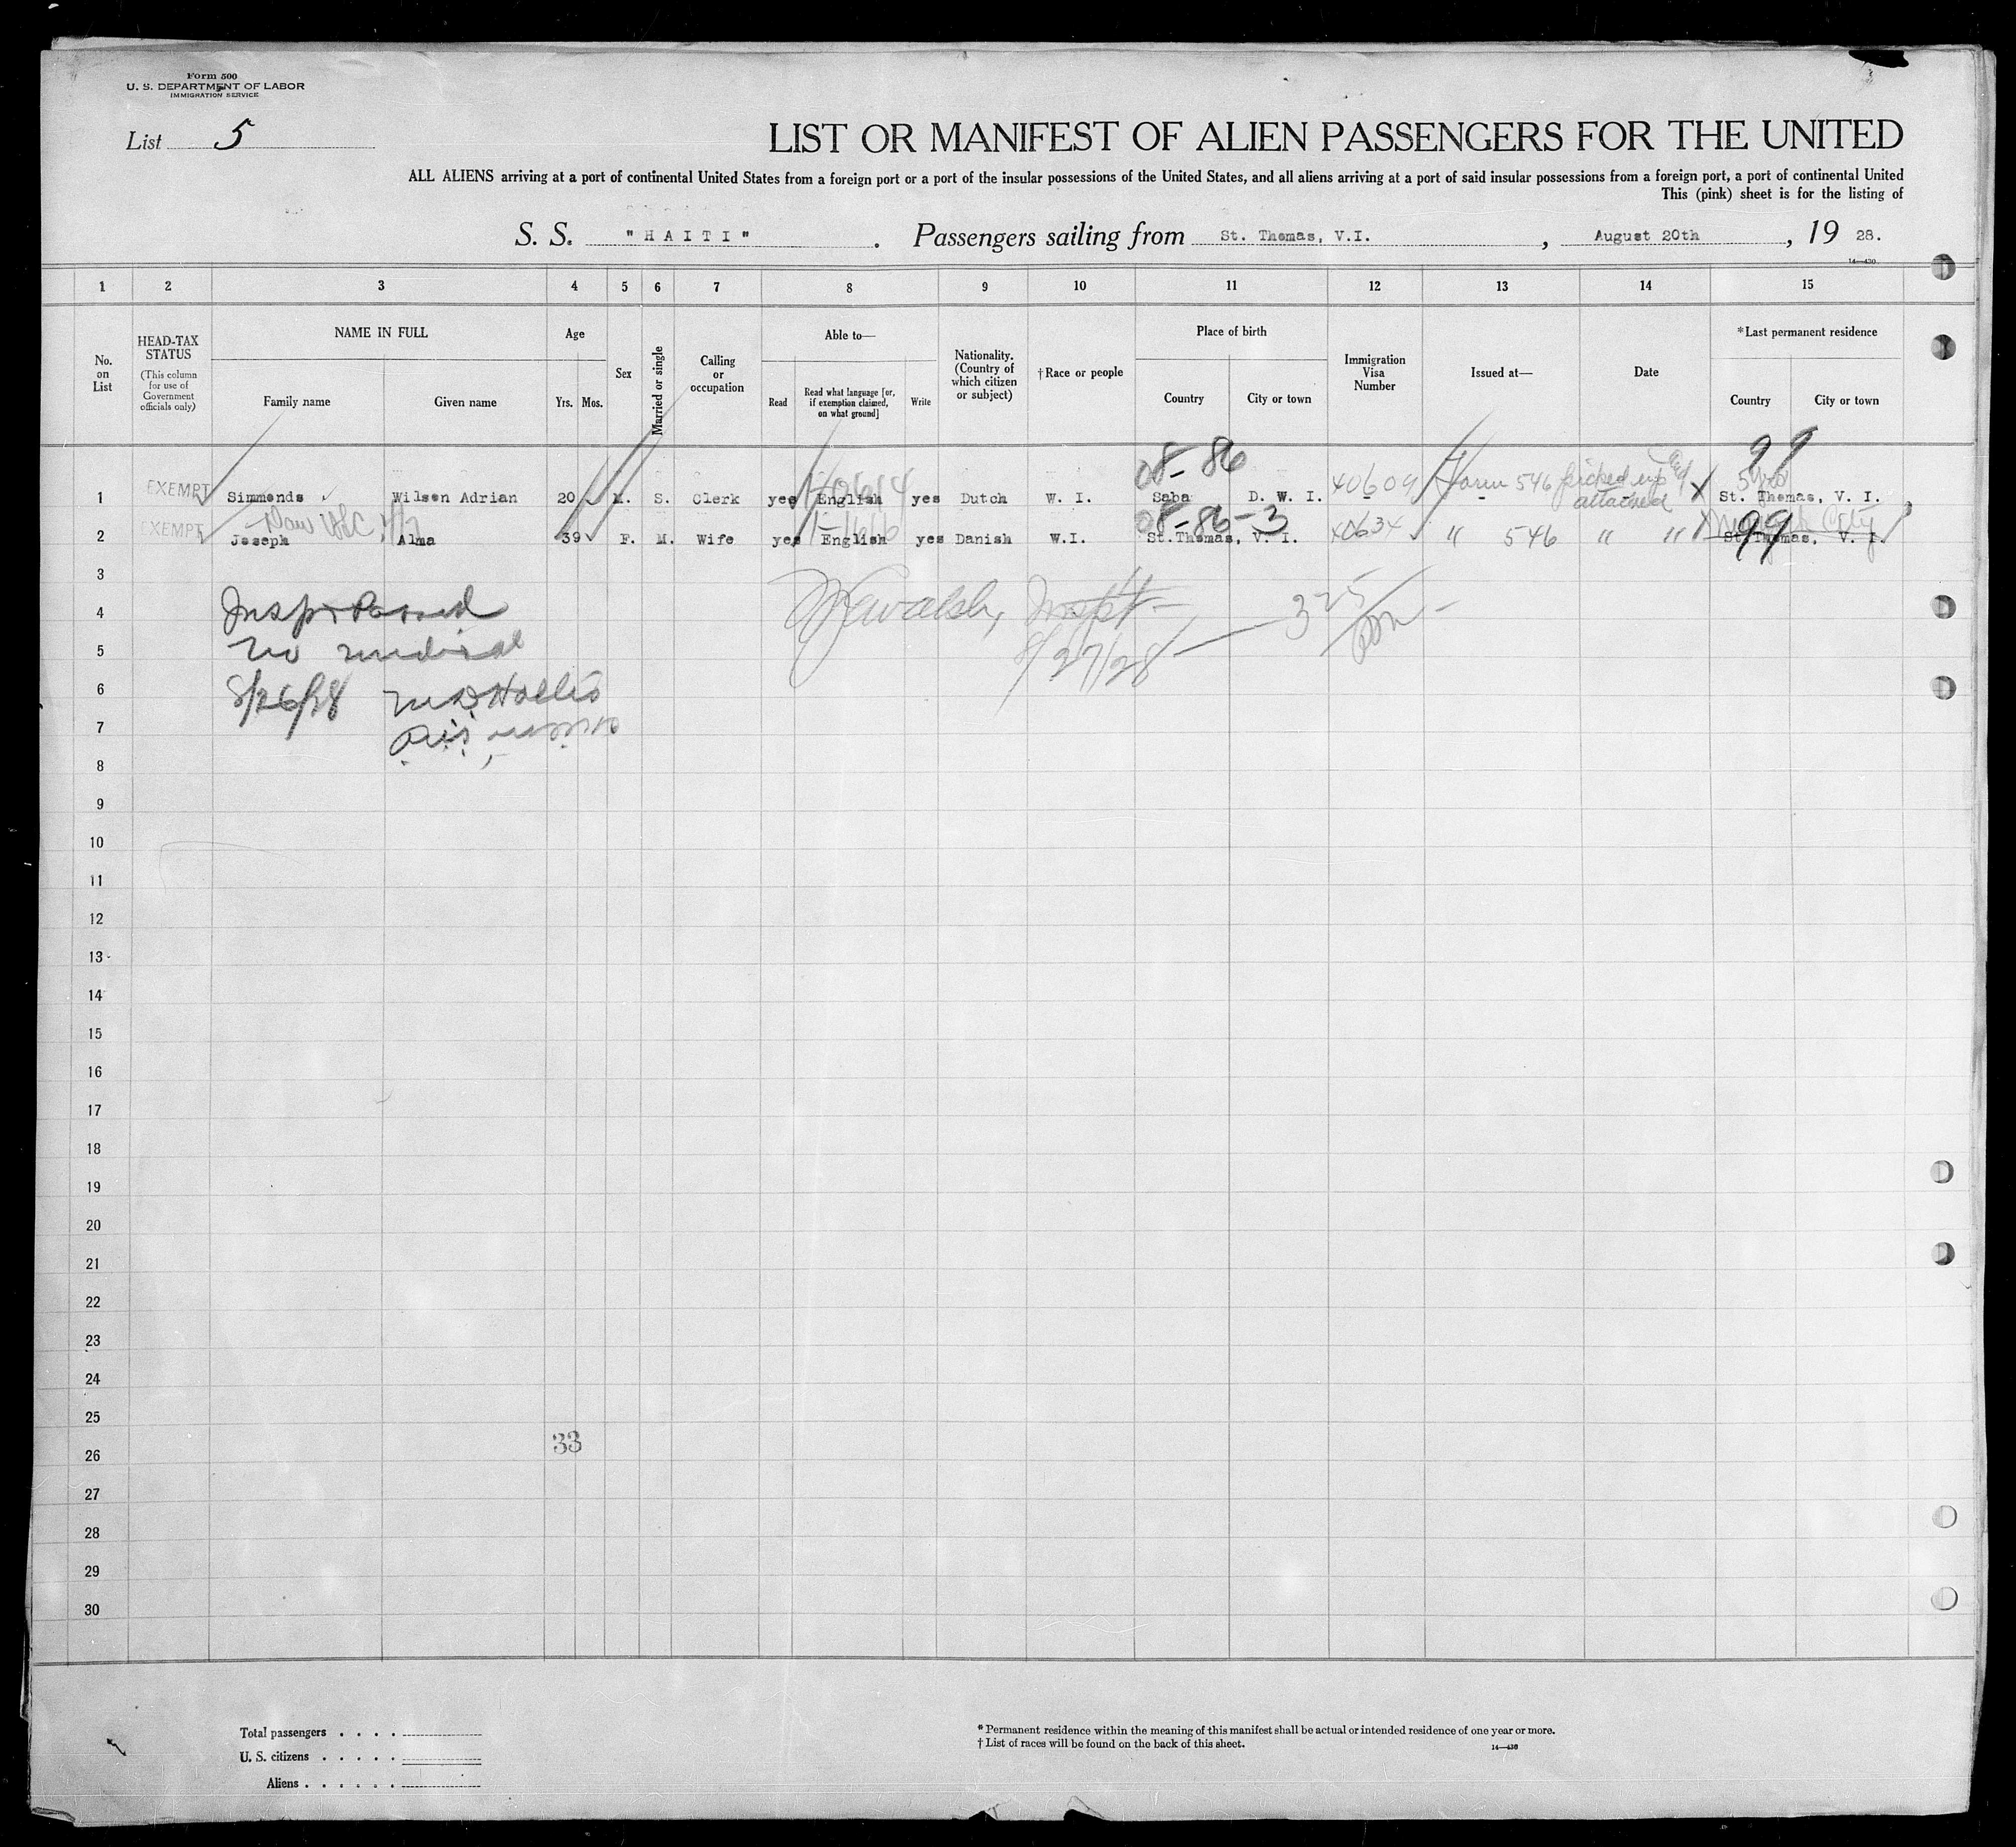 Form 500
U. S. DEPARTMENT OF LABOR
IMMIGRATION SERVICE
List 5
LIST OR MANIFEST OF ALIEN PASSENGERS FOR THE UNITED
ALL ALIENS arriving at a port of continental United States from a foreign port or a port of the insular possessions of the United States, and all aliens arriving at a port of said insular possessions from a foreign port, a port of continental United
This (pink) sheet is for the listing of
S. S. "HAITI" . Passengers sailing from St. Thomas, V.I. , August 20th , 19 28.
14—430
1 2 3 4 5 6 7 8 9 10 11 12 13 14 15
No. on List
HEAD-TAX STATUS (This column for use of Government officials only)
NAME IN FULL
Family name Given name
Age
Yrs. Mos.
Sex
Married or single
Calling or occupation
Able to—
Read
Read what language [or, if exemption claimed, on what ground]
Write
Nationality. (Country of which citizen or subject)
†Race or people
Place of birth
Country City or town
Immigration Visa Number
Issued at—
Date
*Last permanent residence
Country City or town
08-86 99
1 EXEMPT Simmonds Wilson Adrian 20 M. S. Clerk yes English yes Dutch W. I. Saba D. W. I. 40609 Form 546 picked up attached St. Thomas, V. I.
08-86-3 99
2 EXEMPT Joseph Alma 39 F. M. Wife yes English yes Danish W.I. St.Thomas, V. I. " 546 " " St. Thomas, V. I.
3
4 Insp. Passed Walsh, Inspt 325
5 no medical 8/27/28
6 8/26/28 Hollis
7
8
9
10
11
12
13
14
15
16
17
18
19
20
21
22
23
24
25
33
26
27
28
29
30
Total passengers . . . .
U. S. citizens . . . . .
Aliens . . . . . .
* Permanent residence within the meaning of this manifest shall be actual or intended residence of one year or more.
† List of races will be found on the back of this sheet.
14—430